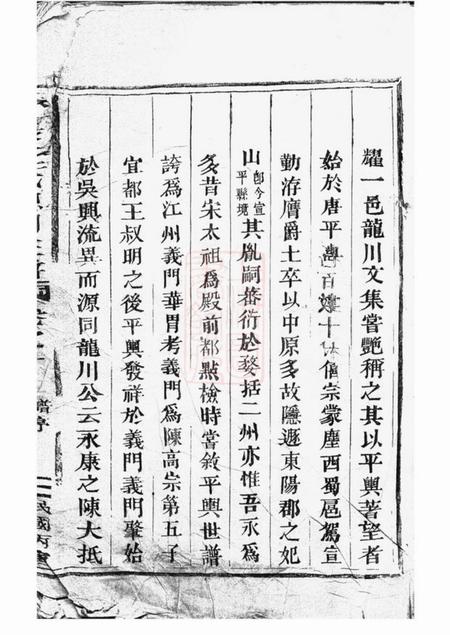 耀一邑龍川文集嘗艷稱之其以平輿著望者
始於唐平輿百十僖宗蒙塵西蜀扈駕宣
勤洊膺爵土卒以中原多故隱遯東陽郡之妃
山卽今宣平縣境其胤嗣蕃衍於婺括二州亦惟吾永爲
多昔宋太祖爲殿前都點檢時嘗敘平輿世譜
誇爲江州義門華胄考義門爲陳高宗第五子
宜都王叔明之後平輿發祥於義門義門肇始
於吳興流異而源同龍川公云永康之陳大抵
譜序
民國丙